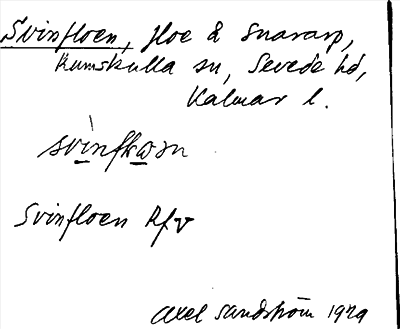 Svinfloen, floe å Snararp,
Rumskulla sn, Sevede hd,
Kalmar l.
Svinfloen Rfv
Axel Sandström 1929